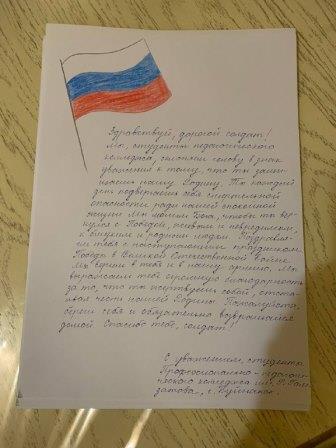 Здравствуй, дорогой солдат!
Мы, студенты педагогического
колледжа, склоняем голову в знак
уважения к тому, что ты защи-
щаешь нашу Родину. Ты каждый
день подвергаешь себя смертельной
опасности ради нашей спокойной
жизни. Мы молим Бога, чтобы ты вер-
нулся с Победой, живым и невредимым,
к близким и родным людям. Поздравля-
ем тебя с наступающим праздником
Победы в Великой Отечественной войне.
Мы верим в тебя и в нашу армию. Мы
выражаем тебе огромную благодарность
за то, что ты жертвуешь собой, отста-
ивая честь нашей Родины. Пожалуйста,
береги себя и обязательно возвращайся
домой. Спасибо тебе, солдат!
С уважением, студенты
Профессионально-педагоги-
ческого колледжа им.
г.